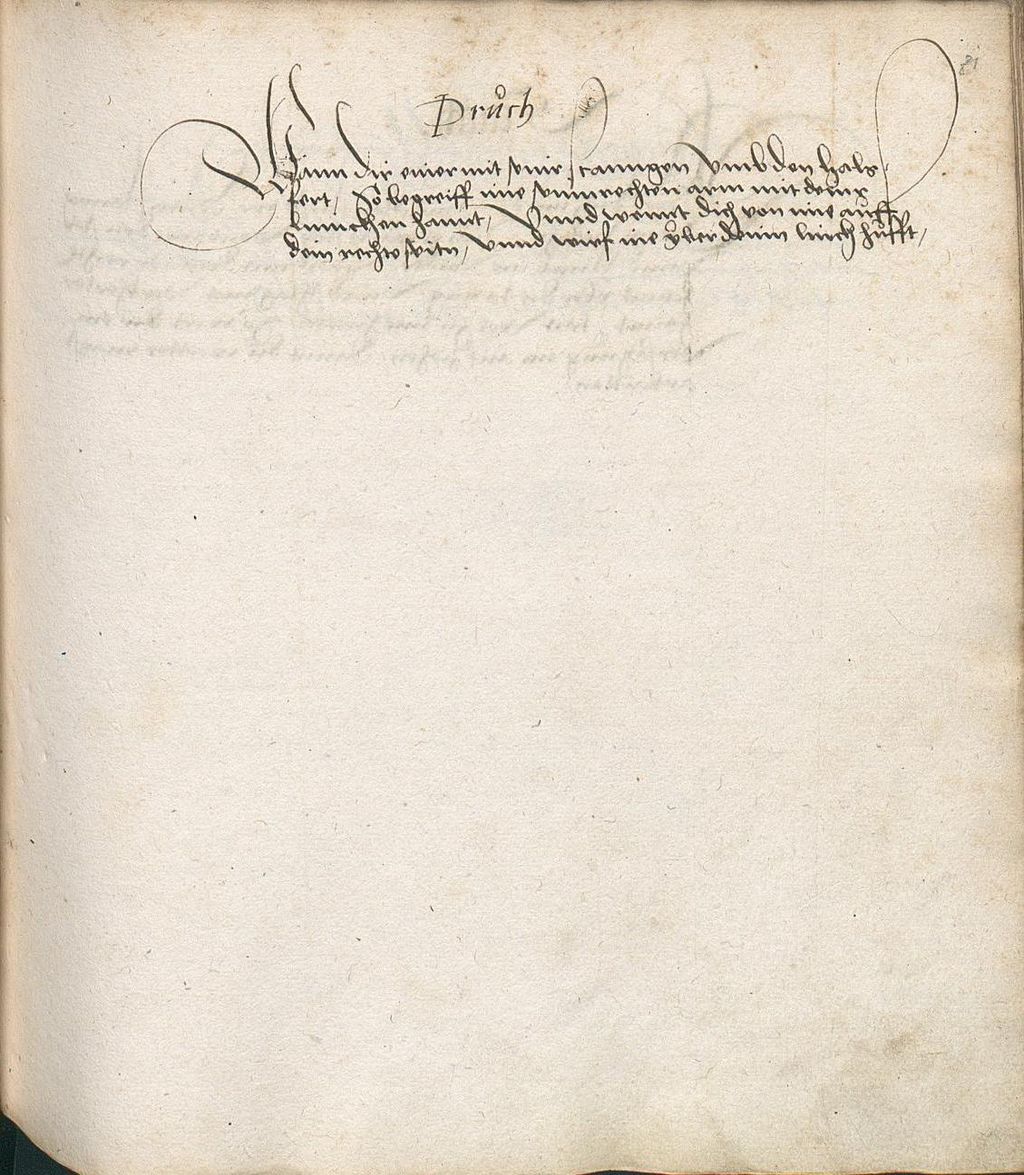 81
Pruch
Wann dir einer mit seinr stanngen Vmb den hals
fert, So begreiff ine seinn rechten arm mit deinr
linncken hannt, Vnnd wennt dich von ime auff
dein rechte seitn, Vnnd wirf ine vber deinn linch hufft,